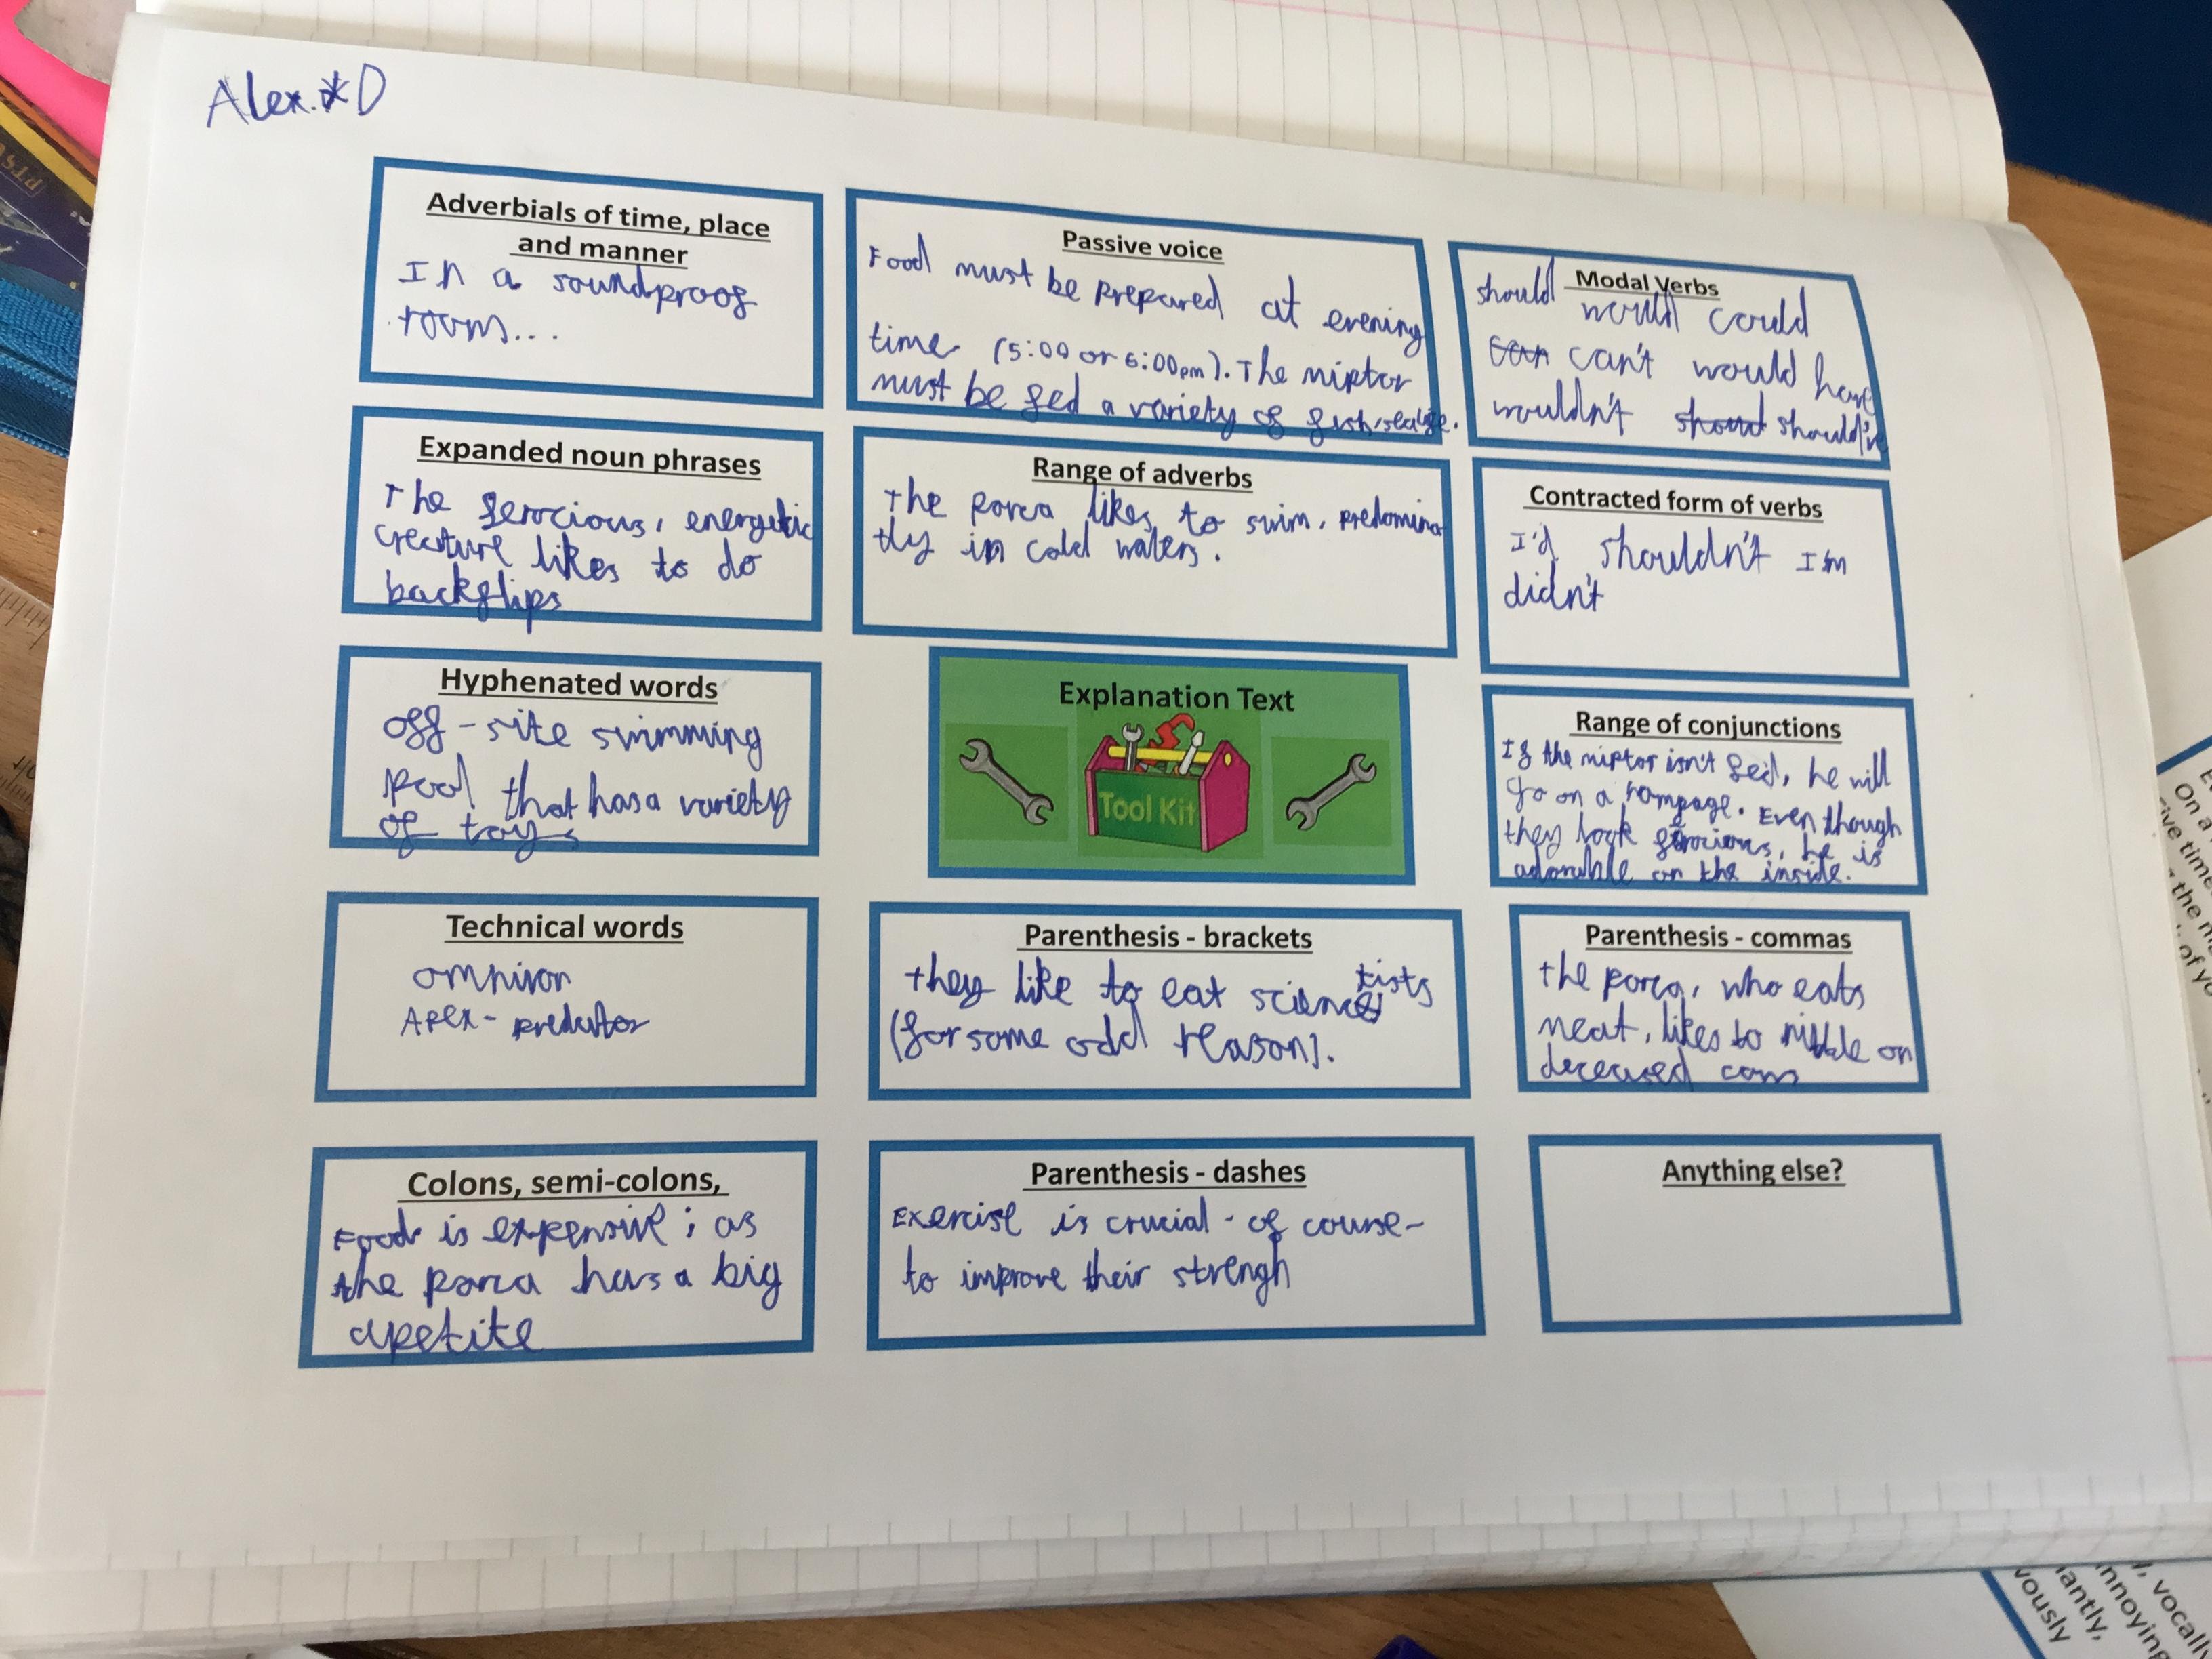 Alex.*D
Adverbials of time, place
and manner
In a soundproof
room...
Passive voice
Food must be prepared at evening
time (5:00 or 6:00pm). The niptor
must be fed a variety of fish
Modal Verbs
should would could
can can't would have
wouldn't should should've
Expanded noun phrases
The ferocious, energetic
creature likes to do
backflips
Range of adverbs
The porca likes to swim, predomina
tly in cold waters.
Contracted form of verbs
I'd shouldn't I'm
didn't
Hyphenated words
off-site swimming
pool that has a variety
of toys
Explanation Text
Tool Kit
Range of conjunctions
If the niptor isn't fed, he will
go on a rampage. Even though
they look ferocious, he is
adorable on the inside.
Technical words
omnivor
Apex-predator
Parenthesis - brackets
They like to eat scientists
(for some odd reason).
Parenthesis - commas
The porca, who eats
meat, likes to nibble on
deceased
Colons, semi-colons,
Food is expensive; as
the porca has a big
apetite
Parenthesis - dashes
Exercise is crucial - of course-
to improve their strengh
Anything else?
On a
ive time
the m
of yo
vocally
nnoying
iantly,
vously